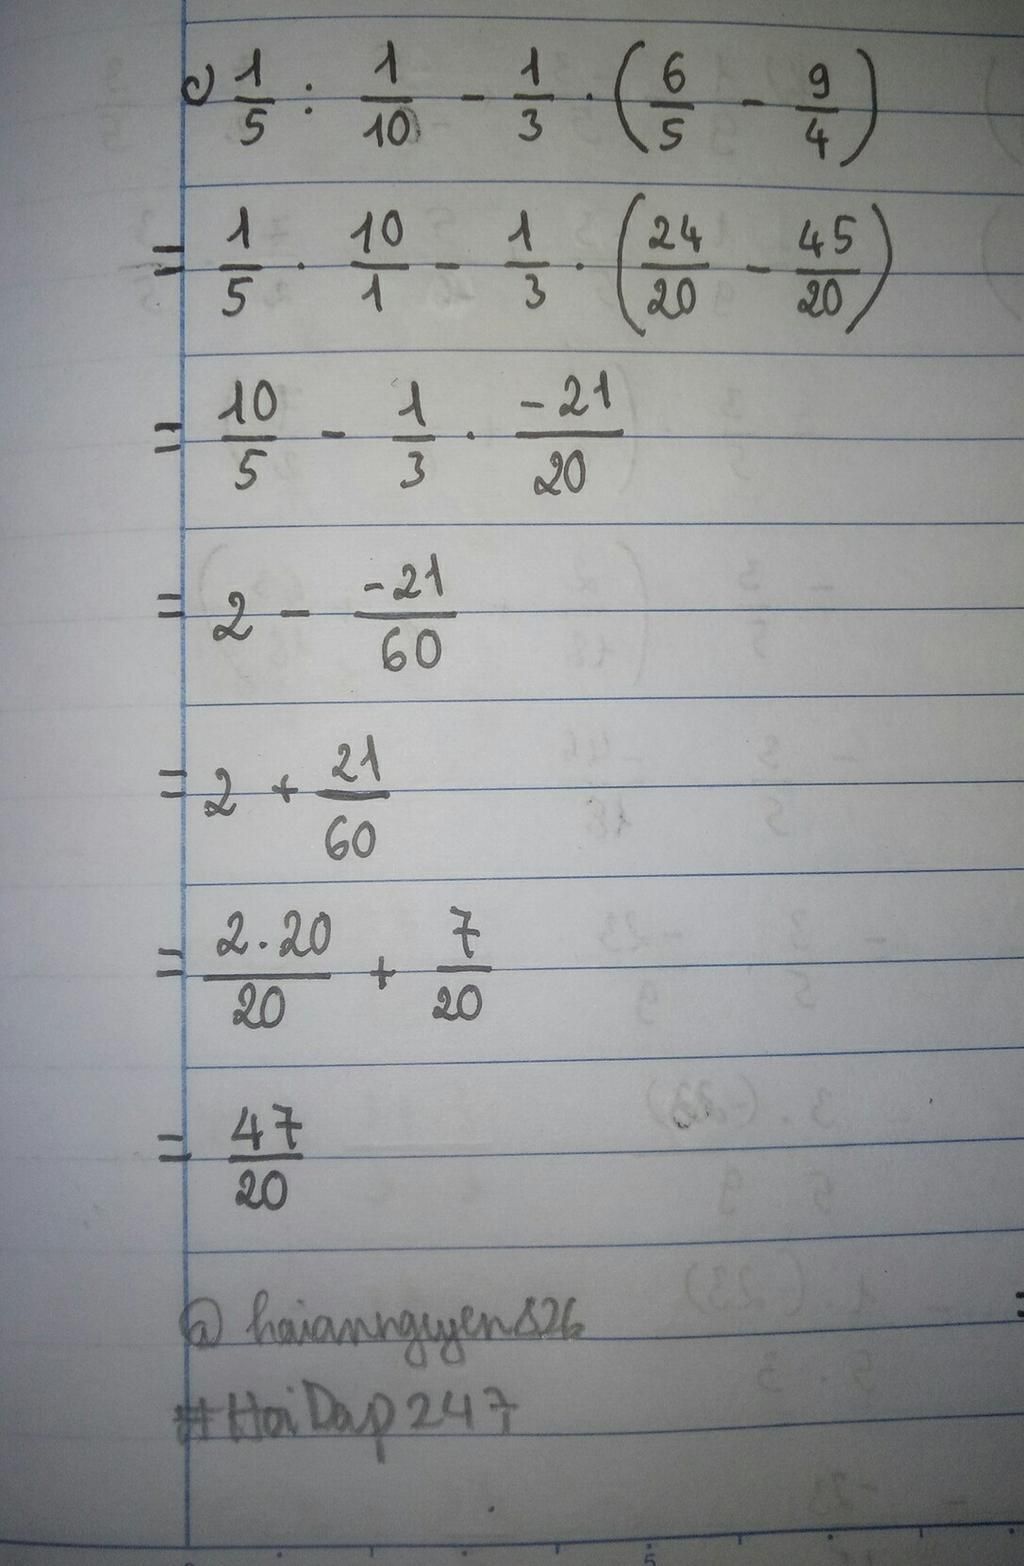 c) 1/5 : 1/10 - 1/3 . (6/5 - 9/4)
= 1/5 . 10/1 - 1/3 . (24/20 - 45/20)
= 10/5 - 1/3 . -21/20
= 2 - -21/60
= 2 + 21/60
= 2.20/20 + 7/20
= 47/20
@haiannguyen826
#HoiDap247